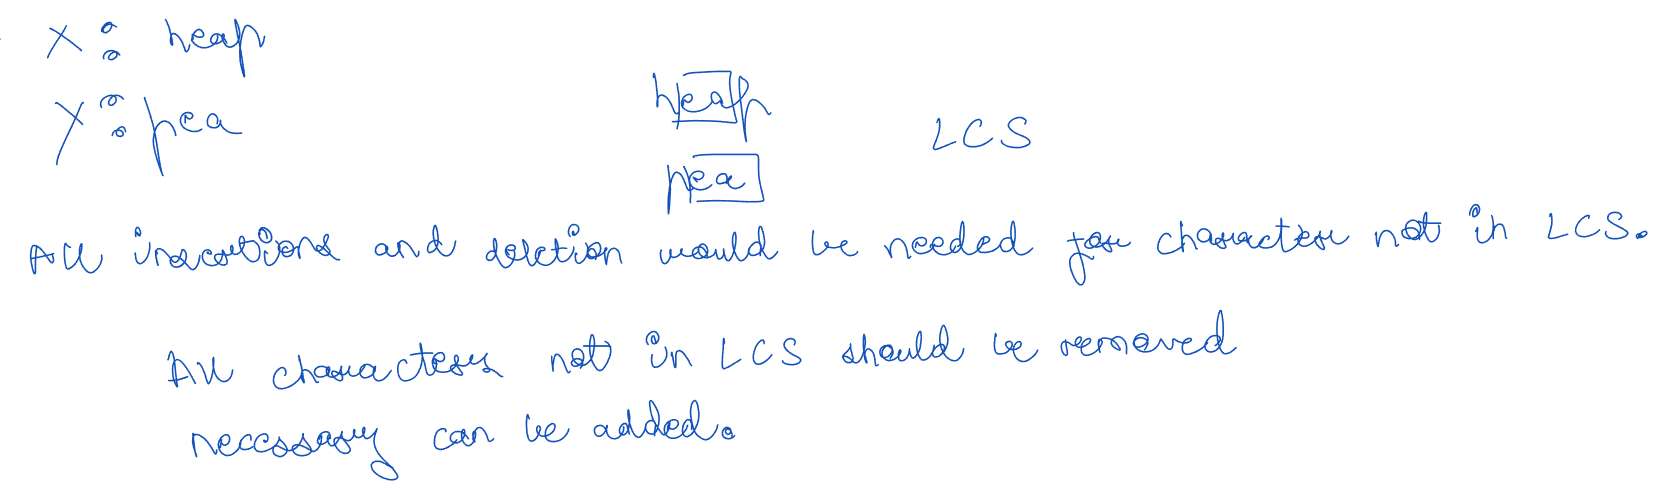 X: heap
Y: pea
heap
LCS
pea
All insertions and deletion would be needed for character not in LCS.
All characters not in LCS should be removed
necessary can be added.